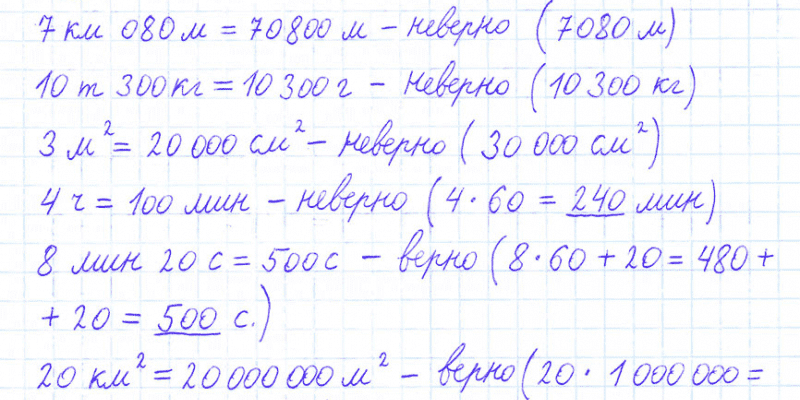 7 км 080 м = 70800 м – неверно (7080 м)
10 т 300 кг = 10 300 г – неверно (10 300 кг)
3 м² = 20 000 см² – неверно (30 000 см²)
4 ч = 100 мин – неверно (4 · 60 = 240 мин)
8 мин 20 с = 500 с – верно (8 · 60 + 20 = 480 +
+ 20 = 500 с.)
20 км² = 20 000 000 м² – верно (20 · 1 000 000 =